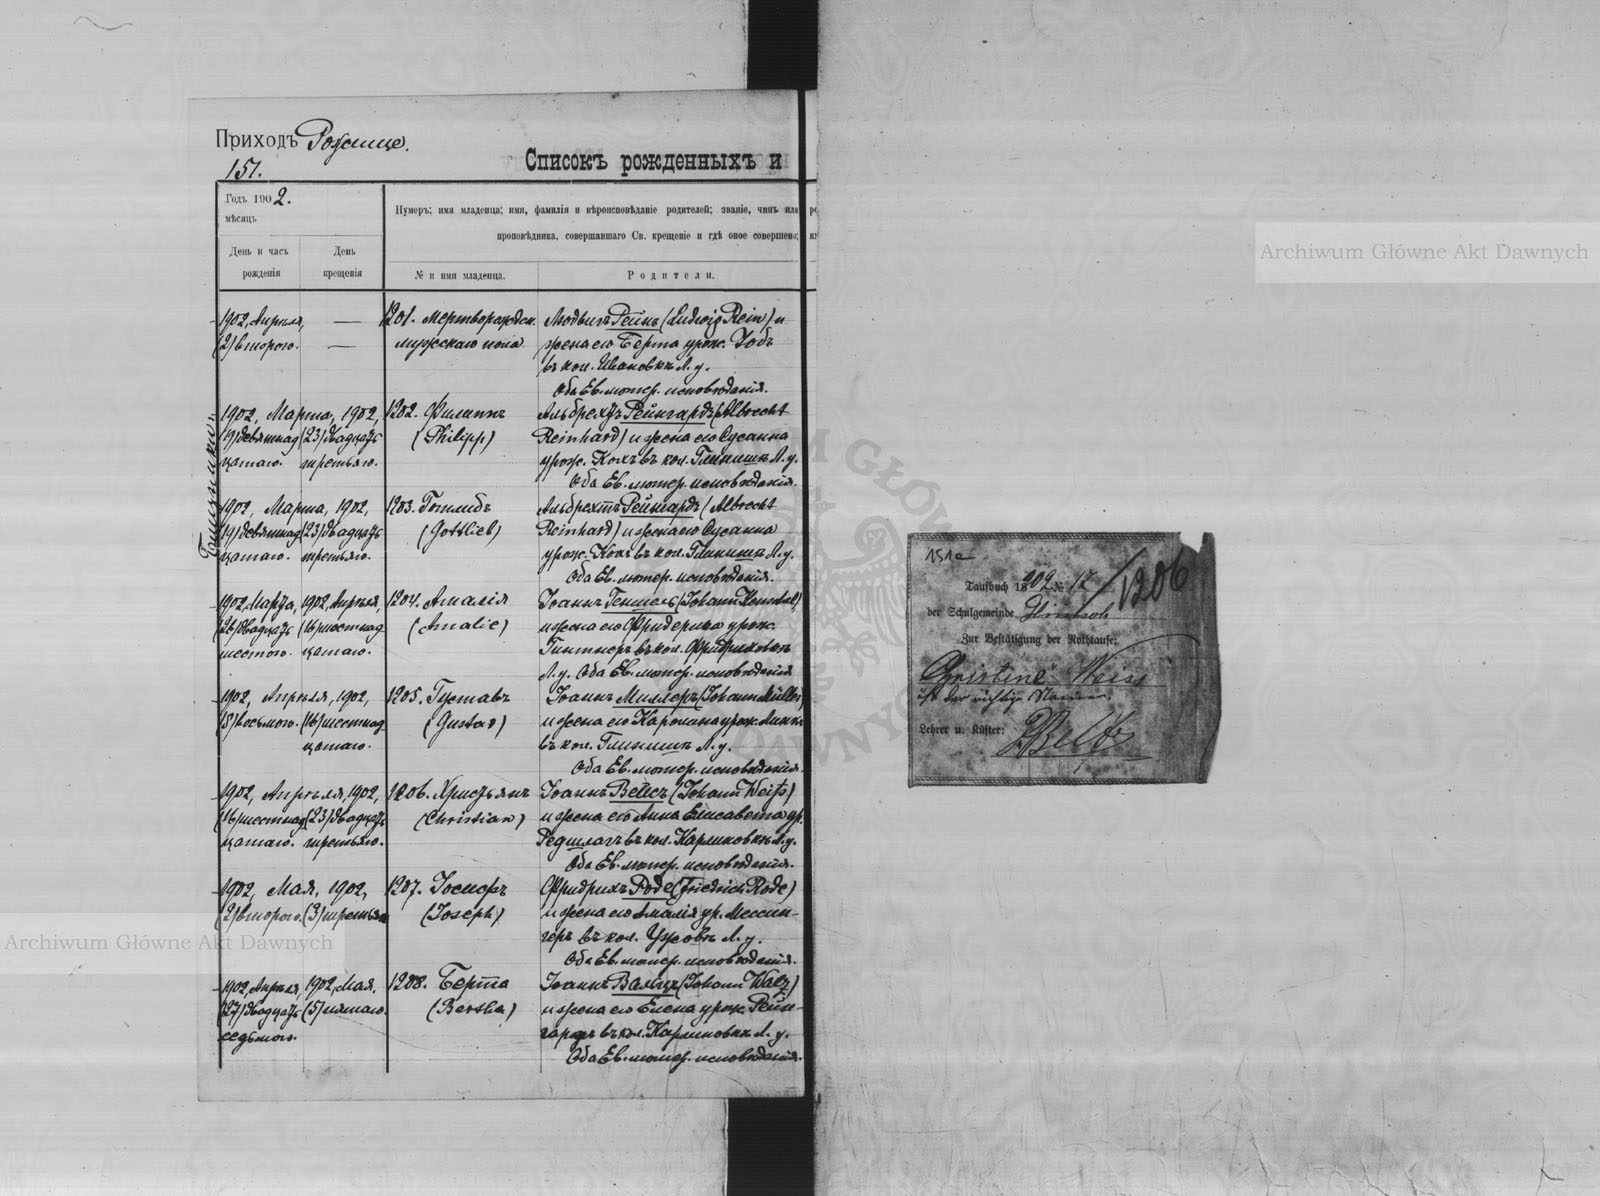 Приходъ Рожище.
151.
Списокъ рожденныхъ и
Годъ 1902.
мѣсяцъ
Нумеръ; имя младенца; имя, фамилія и вѣроисповѣданіе родителей; званіе, чинъ или
проповѣдника, совершавшаго Св. крещеніе и гдѣ оное совершено;
День и часъ рожденія
День крещенія
№ и имя младенца.
Родители.
1902, Апрѣля, — 1201. Мертворожден. Людвигъ Рейнъ (Ludwig Rein) и
(2) второго. — мужскаго пола. жена его Берта урож. Іобъ
въ кол. Ивановкѣ Л. у.
Оба Ев. лютер. исповѣданія.
Близнецы
1902, Марта, 1902, 1202. Филиппъ Альбрехтъ Рейнгардъ (Albrecht
(19) девятнад (23) двадцать (Philipp) Reinhard) и жена его Сусанна
цатаго. третьяго. урож. Кохъ въ кол. Глинищѣ Л. у.
Оба Ев. лютер. исповѣданія.
1902, Марта, 1902, 1203. Готлибъ Альбрехтъ Рейнгардъ (Albrecht
(19) девятнад (23) двадцать (Gottlieb) Reinhard) и жена его Сусанна
цатаго. третьяго. урож. Кохъ въ кол. Глинищѣ Л. у.
Оба Ев. лютер. исповѣданія.
1902, Марта, 1902, Апрѣля, 1204. Амалія Іоганъ Геншель (Johann Henschel)
(26) двадцать (16) шестнад (Amalie) и жена его Фридерика урож.
шестого. цатаго. въ кол. Фридриховкѣ
Л. у. Оба Ев. лютер. исповѣданія
1902, Апрѣля, 1902, 1205. Густавъ Іоганъ Миллеръ (Johann Müller)
(8) восьмого. (16) шестнад (Gustav) и жена его Каролина урож. Линкъ
цатаго. въ кол. Глинищѣ Л. у.
Оба Ев. лютер. исповѣданія.
1902, Апрѣля, 1902, 1206. Христьянъ Іоганъ Вейсъ (Johann Weiß)
(16) шестнад (23) двадцать (Christian) и жена его Анна Елисавета ур.
цатаго. третьяго. Редшлагъ въ кол. Карлиновкѣ Л. у.
Оба Ев. лютер. исповѣданія.
1902, Мая, 1902, 1207. Іосифъ Фридрихъ Роде (Friedrich Rode)
(2) второго. (3) третьяго (Joseph) и жена его Амалія ур. Мессин-
геръ въ кол. Ужовѣ Л. у.
Оба Ев. лютер. исповѣданія.
1902, Апрѣля, 1902, Мая, 1208. Берта Іоганъ Вальцъ (Johann Walz)
(27) двадцать (5) пятаго. (Bertha) и жена его Елена урож. Рейн-
седьмого. гардъ въ кол. Карлиновкѣ Л. у.
Оба Ев. лютер. исповѣданія.
151a
Taufbuch 1902 № 17 / 1206
der Schulgemeinde
Zur Bestätigung der Nothtaufe:
Christine Weiss
ist der richtige Name.
Lehrer u. Küster:
Archiwum Główne Akt Dawnych
Archiwum Główne Akt Dawnych